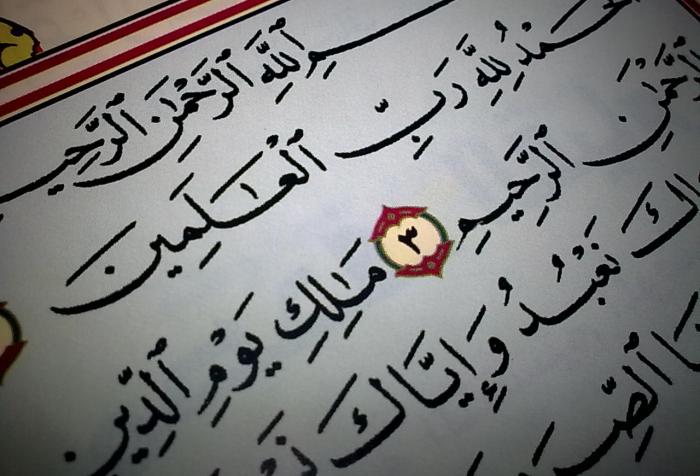 سِمِ ٱللَّهِ ٱلرَّحْمَٰنِ ٱلرَّحِي
حَمْدُ لِلَّهِ رَبِّ ٱلْعَٰلَمِينَ
ٱلرَّحْمَٰنِ ٱلرَّحِيمِ ٣ مَٰلِكِ يَوْمِ ٱلدِّينِ
اكَ نَعْبُدُ وَإِيَّاكَ نَ
نَا ٱلصِّرَ